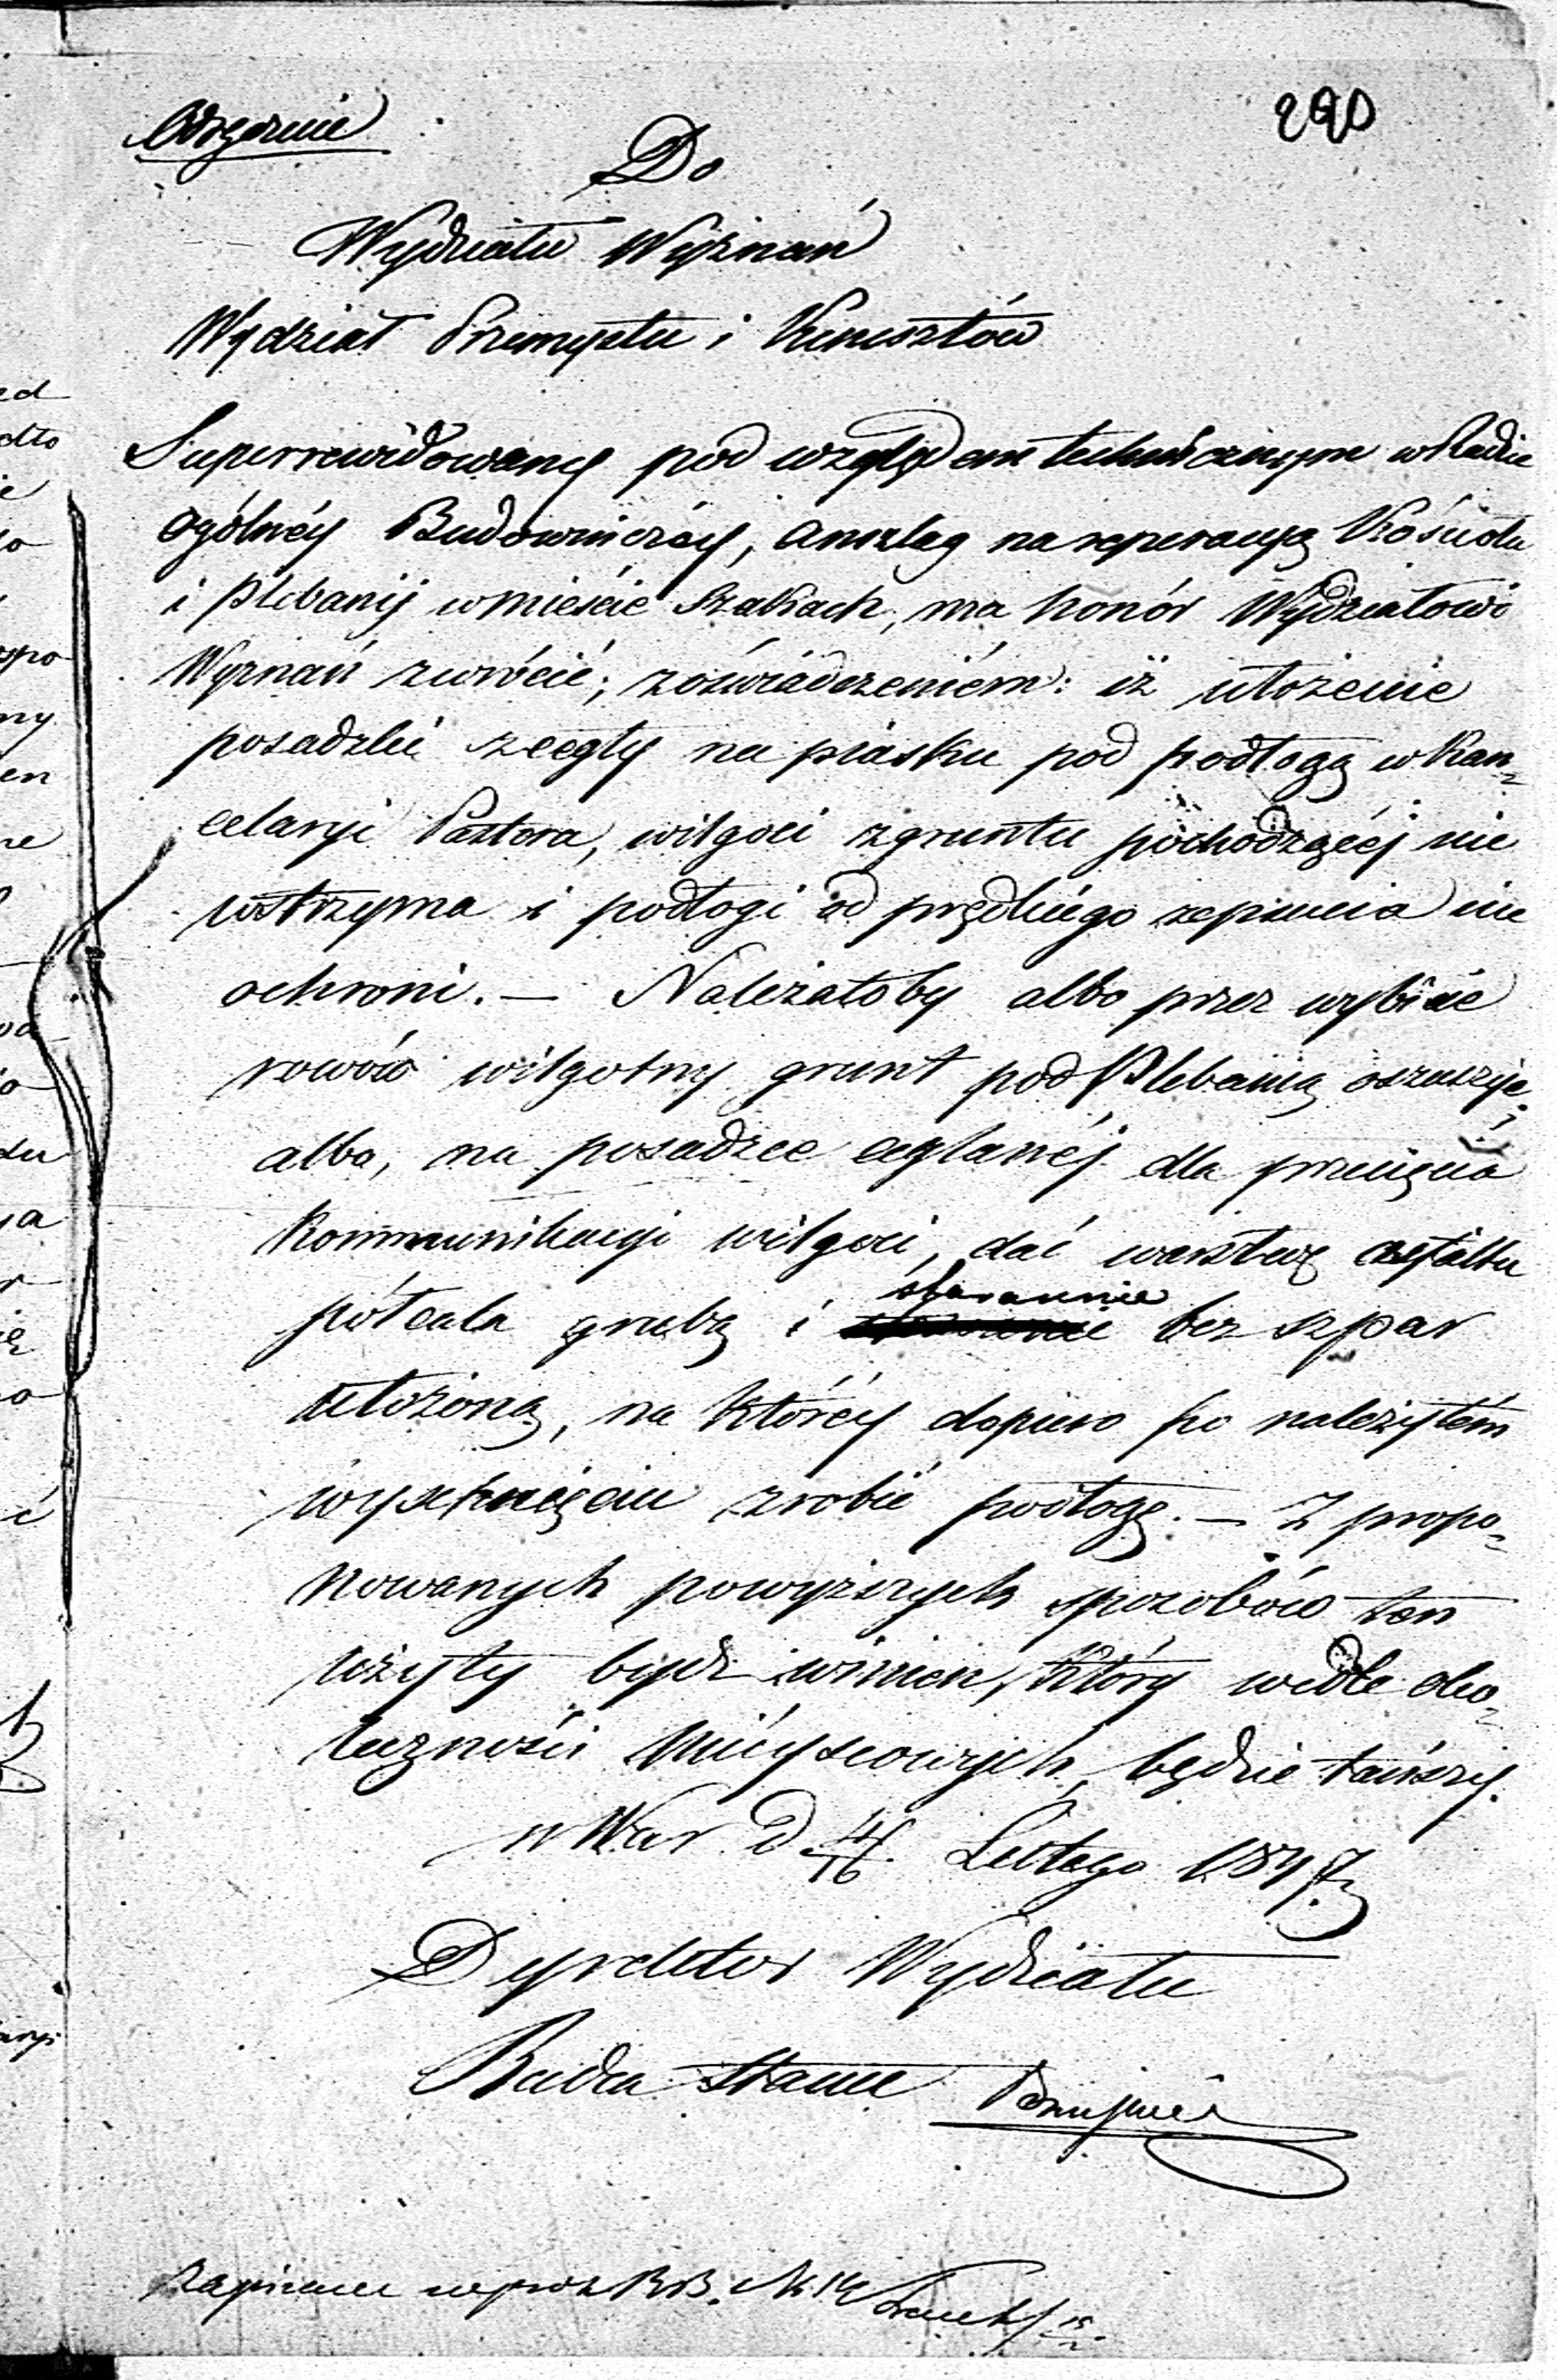 Odręcznie
290
Do
Wydziału Wyznań
Wydział Przemysłu i Kunsztów
Superrewidowany pod względem technicznym w Radzie
ogólnéy Budowniczéy, anszlag na reperacyą Kościoła
i Plebanij w mieście Szakach, ma honór Wydziałowi
Wyznań zwrócić; z oświadczeniém: iż ułożenie
posadzki z cegły na piasku pod podłogą w Kan=
celaryi Pastora, wilgoci z gruntu pochodzącéj nie
wstrzyma i podłogi od prędkiego zepsucia nie
ochroni. — Należałoby albo przez wybicie
rowów wilgotny grunt pod Plebanią oszuszyć;
albo, na posadzce ceglanéj dla przecięcia
Kommunikacyi wilgoci, dać warstwę asfaltu
półcala grubą i starannie bez szpar
ułożoną, na któréy dopiero po należytém
wyschnięciu zrobić podłogę. — Z propo=
nowanych powyższych sposobów ten
użyty bydź winien, który wedle oko=
liczności miéyscowych, będzie tańszy.
w War. D 4/16 Lutego 1847 r.
Dyrektor Wydziału
Radca Stanu